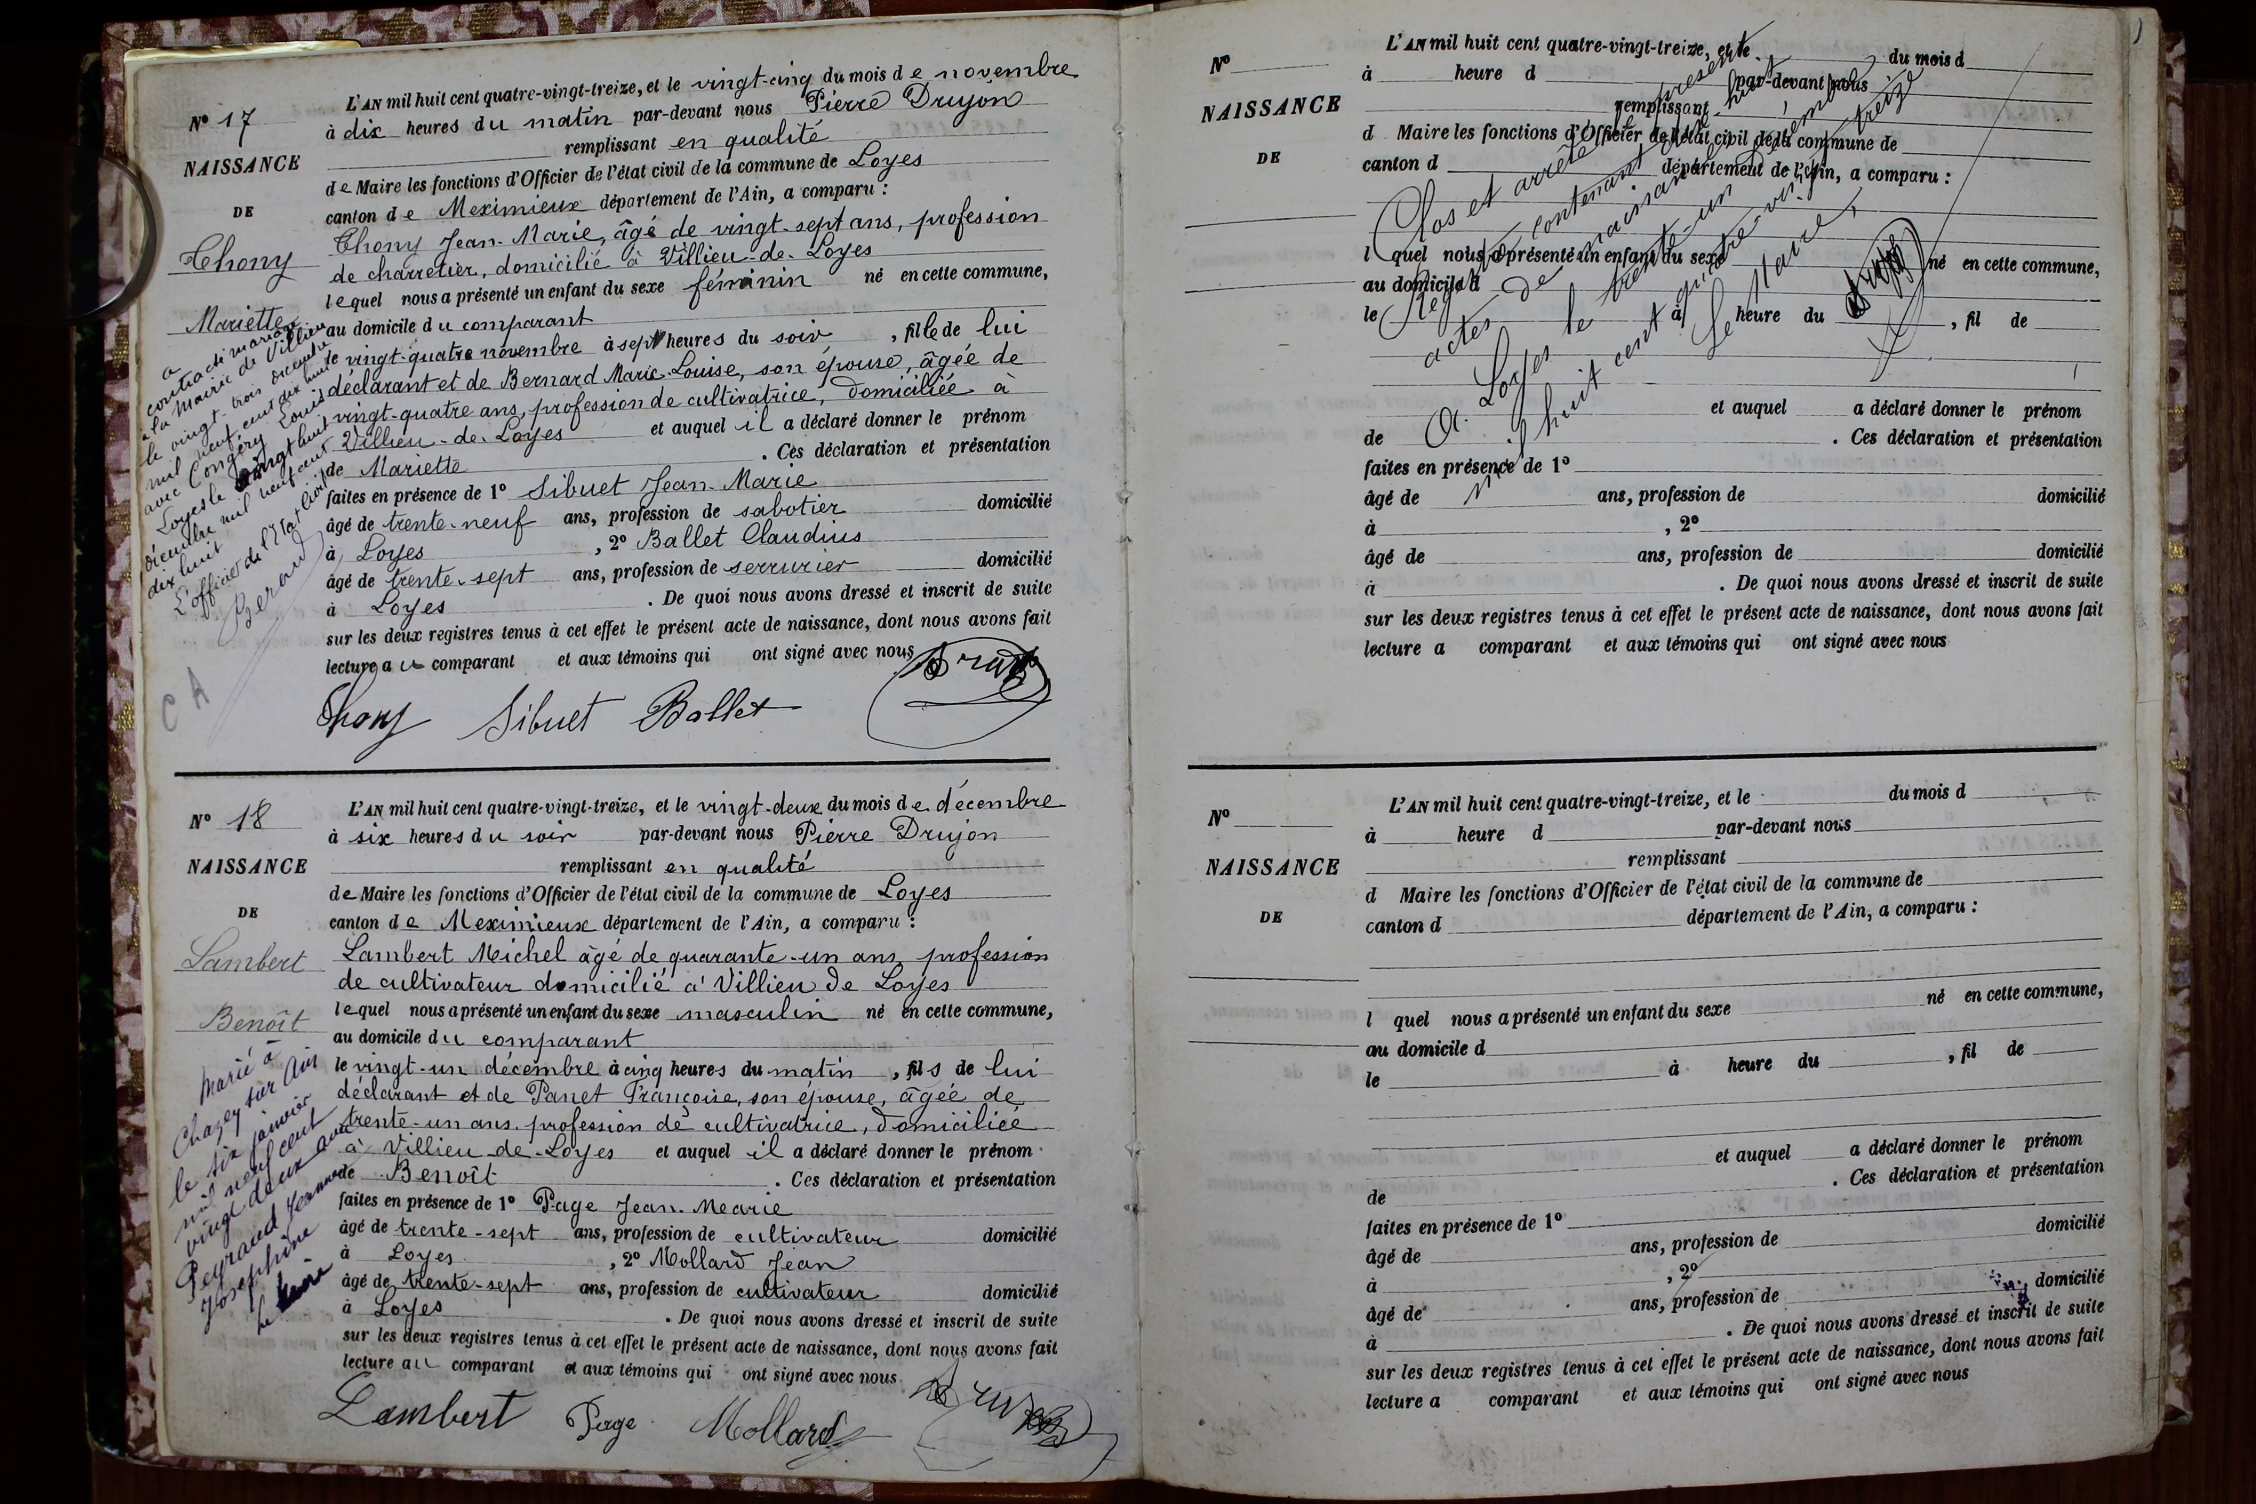 L'AN mil huit cent quatre-vingt-treize, et le vingt-cinq du mois de novembre
N° 17
à dix heures du matin par-devant nous Pierre Drujon
remplissant en qualité
NAISSANCE
de Maire les fonctions d'Officier de l'état civil de la commune de Loyes
DE
canton de Meximieux département de l'Ain, a comparu :
Thony
Thony Jean-Marie, âgé de vingt-sept ans, profession
de charretier, domicilié à Villieu-de-Loyes
lequel nous a présenté un enfant du sexe féminin né en cette commune,
Mariette
au domicile du comparant
le vingt-quatre novembre à sept heures du soir, fille de lui
déclarant et de Bernard Marie-Louise, son épouse, âgée de
vingt-quatre ans, profession de cultivatrice, domiciliée à
Villieu-de-Loyes et auquel il a déclaré donner le prénom
de Mariette. Ces déclaration et présentation
faites en présence de 1° Sibuet Jean-Marie
âgé de trente-neuf ans, profession de sabotier domicilié
à Loyes, 2° Ballet Claudius
âgé de trente-sept ans, profession de serrurier domicilié
à Loyes. De quoi nous avons dressé et inscrit de suite
sur les deux registres tenus à cet effet le présent acte de naissance, dont nous avons fait
lecture au comparant et aux témoins qui ont signé avec nous
a
contracté mariage
à la Mairie de Villieu
le vingt-trois décembre
mil neuf cent dix huit
avec Congéry Louis
Loyes le vingt huit
décembre mil neuf cent
dix huit
L'officier de l'Etat Civil
CA
Thony Sibuet Ballet
N° 18
L'AN mil huit cent quatre-vingt-treize, et le vingt-deux du mois de décembre
à six heures du soir par-devant nous Pierre Drujon
NAISSANCE
remplissant en qualité
de Maire les fonctions d'Officier de l'état civil de la commune de Loyes
DE
canton de Meximieux département de l'Ain, a comparu :
Lambert
Lambert Michel âgé de quarante-un ans, profession
de cultivateur domicilié à Villieu de Loyes
Benoît
lequel nous a présenté un enfant du sexe masculin né en cette commune,
au domicile du comparant
le vingt-un décembre à cinq heures du matin, fils de lui
déclarant et de Panet Françoise, son épouse, âgée de
trente-un ans, profession de cultivatrice, domiciliée
à Villieu-de-Loyes et auquel il a déclaré donner le prénom
de Benoît. Ces déclaration et présentation
faites en présence de 1° Page Jean-Marie
âgé de trente-sept ans, profession de cultivateur domicilié
à Loyes, 2° Mollard Jean
âgé de trente-sept ans, profession de cultivateur domicilié
à Loyes. De quoi nous avons dressé et inscrit de suite
sur les deux registres tenus à cet effet le présent acte de naissance, dont nous avons fait
lecture au comparant et aux témoins qui ont signé avec nous
Marié à
Chazey sur Ain
le six janvier
mil neuf cent
vingt deux avec
Peyraud Jeanne
Josephine
Le Maire
Lambert Page Mollard
L'AN mil huit cent quatre-vingt-treize, et le du mois d
N°
à heure d par-devant nous
NAISSANCE
remplissant
d Maire les fonctions d'Officier de l'état civil de la commune de
DE
canton d département de l'Ain, a comparu :
l quel nous a présenté un enfant du sexe né en cette commune,
au domicile d
le à heure du, fil de
et auquel a déclaré donner le prénom
de. Ces déclaration et présentation
faites en présence de 1°
âgé de ans, profession de domicilié
à, 2°
âgé de ans, profession de domicilié
à. De quoi nous avons dressé et inscrit de suite
sur les deux registres tenus à cet effet le présent acte de naissance, dont nous avons fait
lecture a comparant et aux témoins qui ont signé avec nous
Clos et arrêté le présent
Registre contenant dix-huit
actes de naissance
A Loyes le trente-un décembre
mil huit cent quatre-vingt treize
Le Maire,
L'AN mil huit cent quatre-vingt-treize, et le du mois d
N°
à heure d par-devant nous
NAISSANCE
remplissant
d Maire les fonctions d'Officier de l'état civil de la commune de
DE
canton d département de l'Ain, a comparu :
l quel nous a présenté un enfant du sexe né en cette commune,
au domicile d
le à heure du, fil de
et auquel a déclaré donner le prénom
de. Ces déclaration et présentation
faites en présence de 1°
âgé de ans, profession de domicilié
à, 2°
âgé de ans, profession de domicilié
à. De quoi nous avons dressé et inscrit de suite
sur les deux registres tenus à cet effet le présent acte de naissance, dont nous avons fait
lecture a comparant et aux témoins qui ont signé avec nous